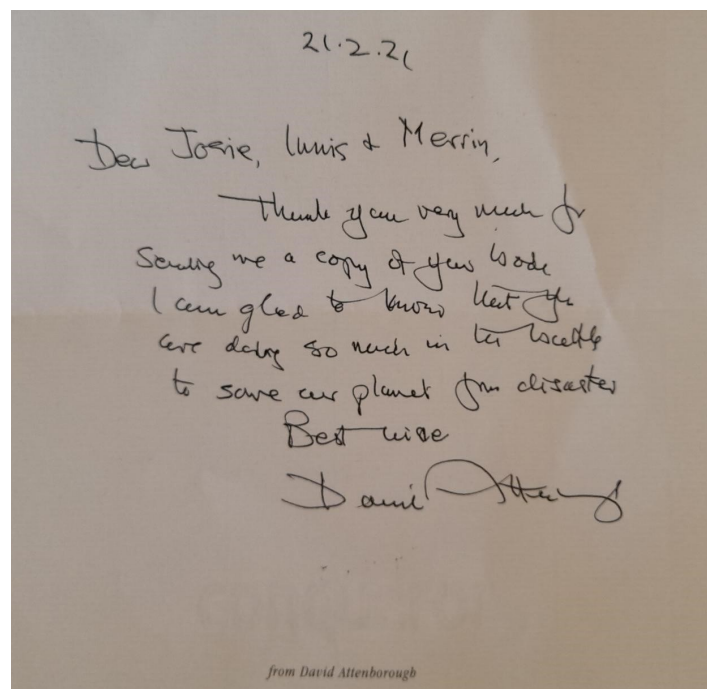 21.2.21
Dear Josie, Innis & Merrin,
Thank you very much for
sending me a copy of your book
I am glad to know that you
are doing so much in
to save our planet from disaster
Best wishes
David Attenborough
from David Attenborough